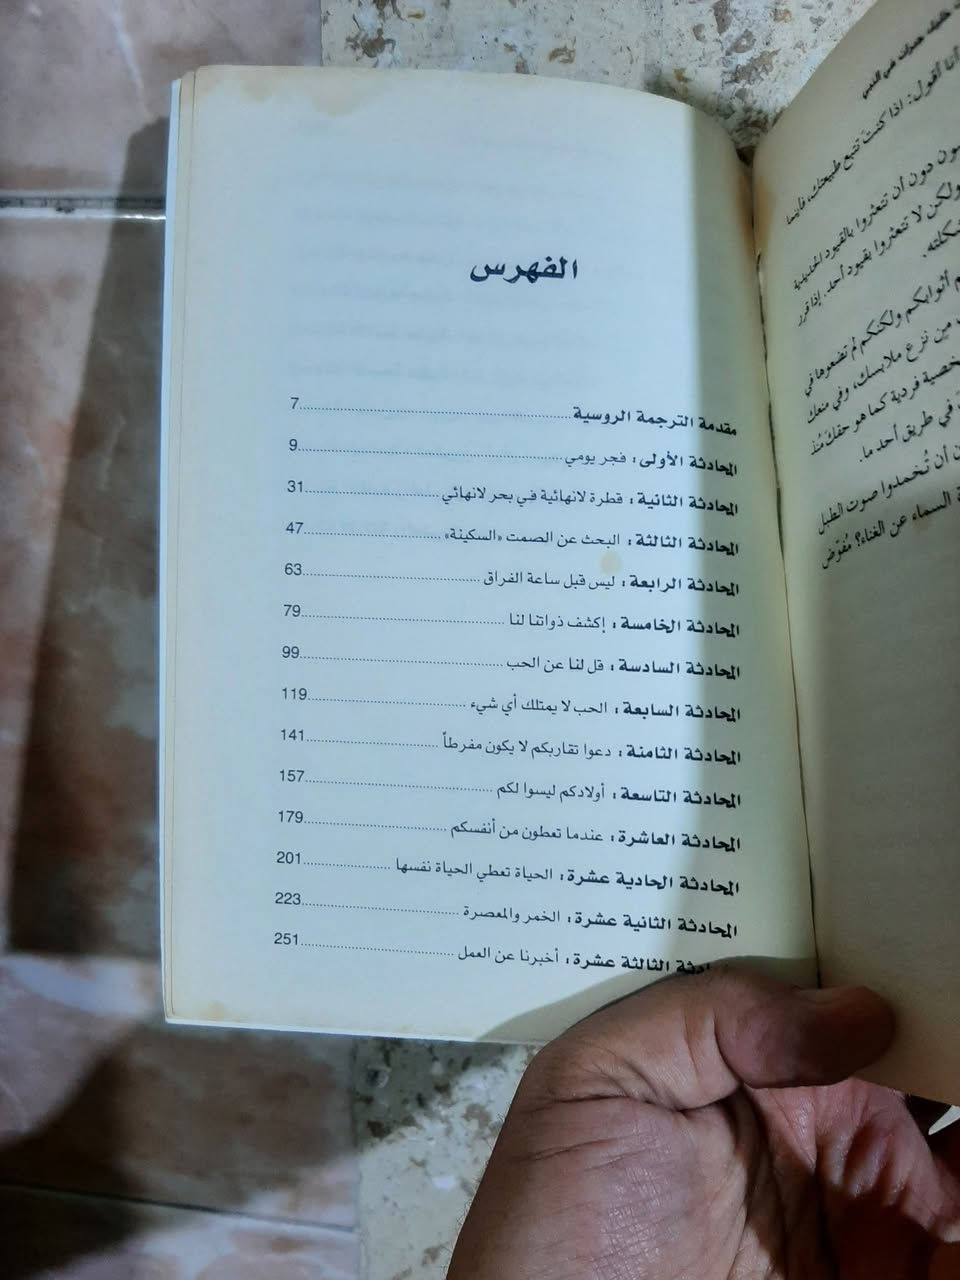 الفهرس
مقدمة الترجمة الروسية......7
المحادثة الأولى: فجر يومي......9
المحادثة الثانية: قطرة لانهائية في بحر لانهائي......31
المحادثة الثالثة: البحث عن الصمت «السكينة»......47
المحادثة الرابعة: ليس قبل ساعة الفراق......63
المحادثة الخامسة: إكشف ذواتنا لنا......79
المحادثة السادسة: قل لنا عن الحب......99
المحادثة السابعة: الحب لا يمتلك أي شيء......119
المحادثة الثامنة: دعوا تقاربكم لا يكون مفرطاً......141
المحادثة التاسعة: أولادكم ليسوا لكم......157
المحادثة العاشرة: عندما تعطون من أنفسكم......179
المحادثة الحادية عشرة: الحياة تعطي الحياة نفسها......201
المحادثة الثانية عشرة: الخمر والمعصرة......223
المحادثة الثالثة عشرة: أخبرنا عن العمل......251
أنا أقول: اذا كنت تتبع طبيعتك، فأينما
دون أن تتعثروا بالقيود الحديدية
ولكن لا تتعثروا بقيود أحد. إذا قرر
أثوابكم ولكنكم لم تضعوها في
من نزع ملابسك، وفي منعك
فردية كما هو حقك مُنذ
في طريق أحد ما.
أن تُخمدوا صوت الطبل
السماء عن الغناء؟ مُفوّض